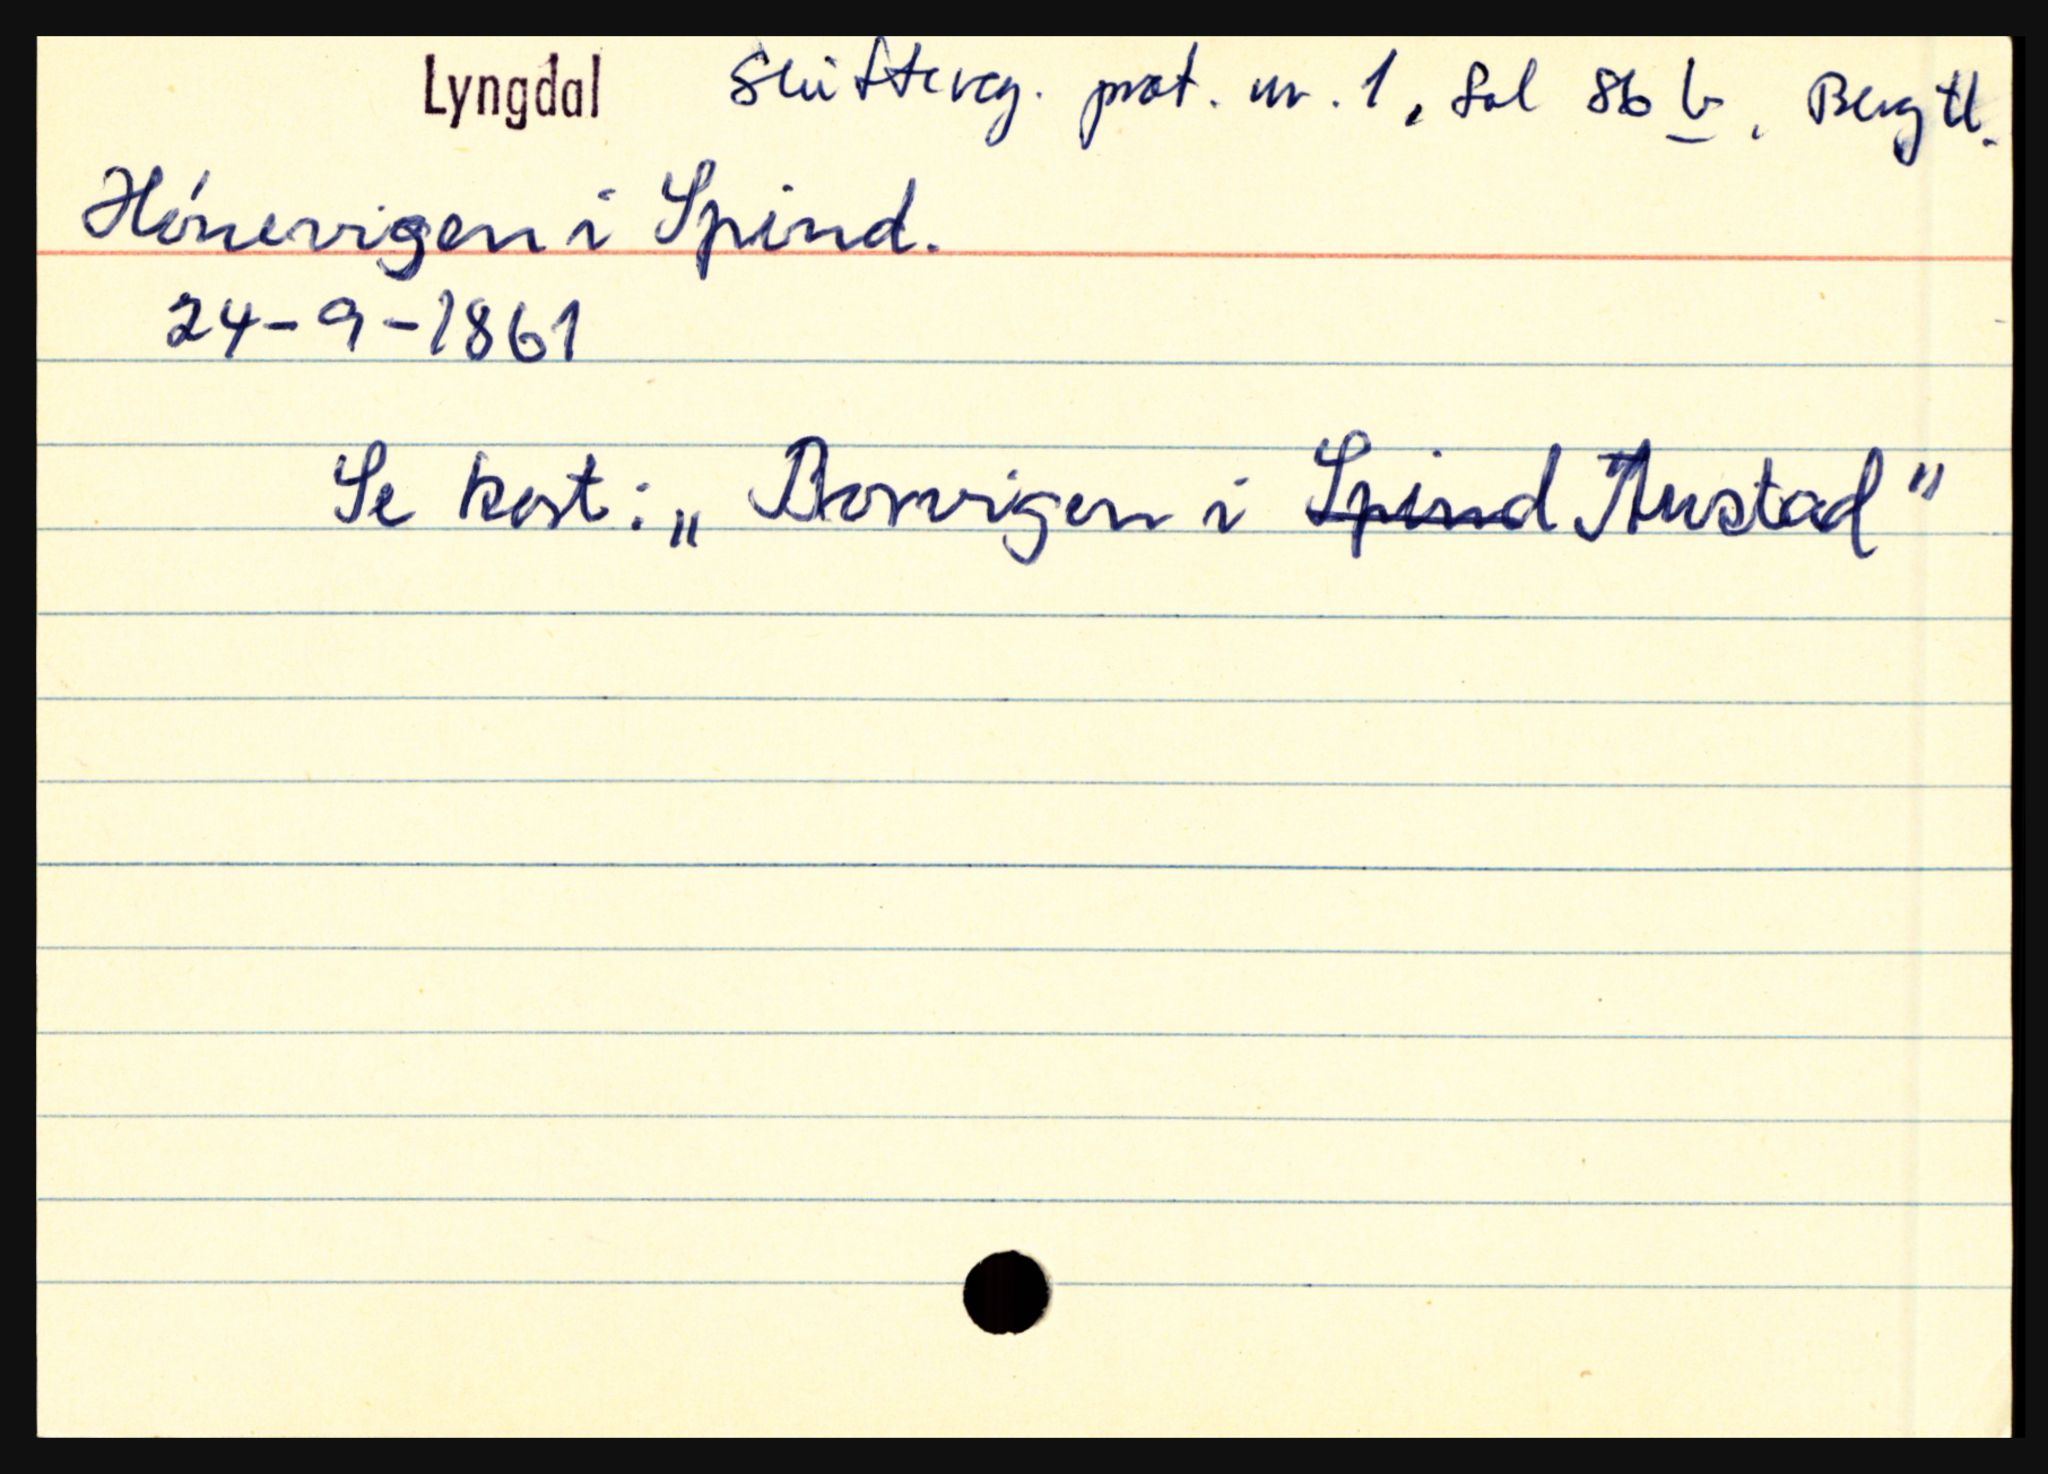 Lyngdal Skiftereg. prot. nr. 1, fol 86 b, Bergtl.
Hónevigen i Spind.
24-9-1861
Se kort: „ Bomvigen i Spind Austad "